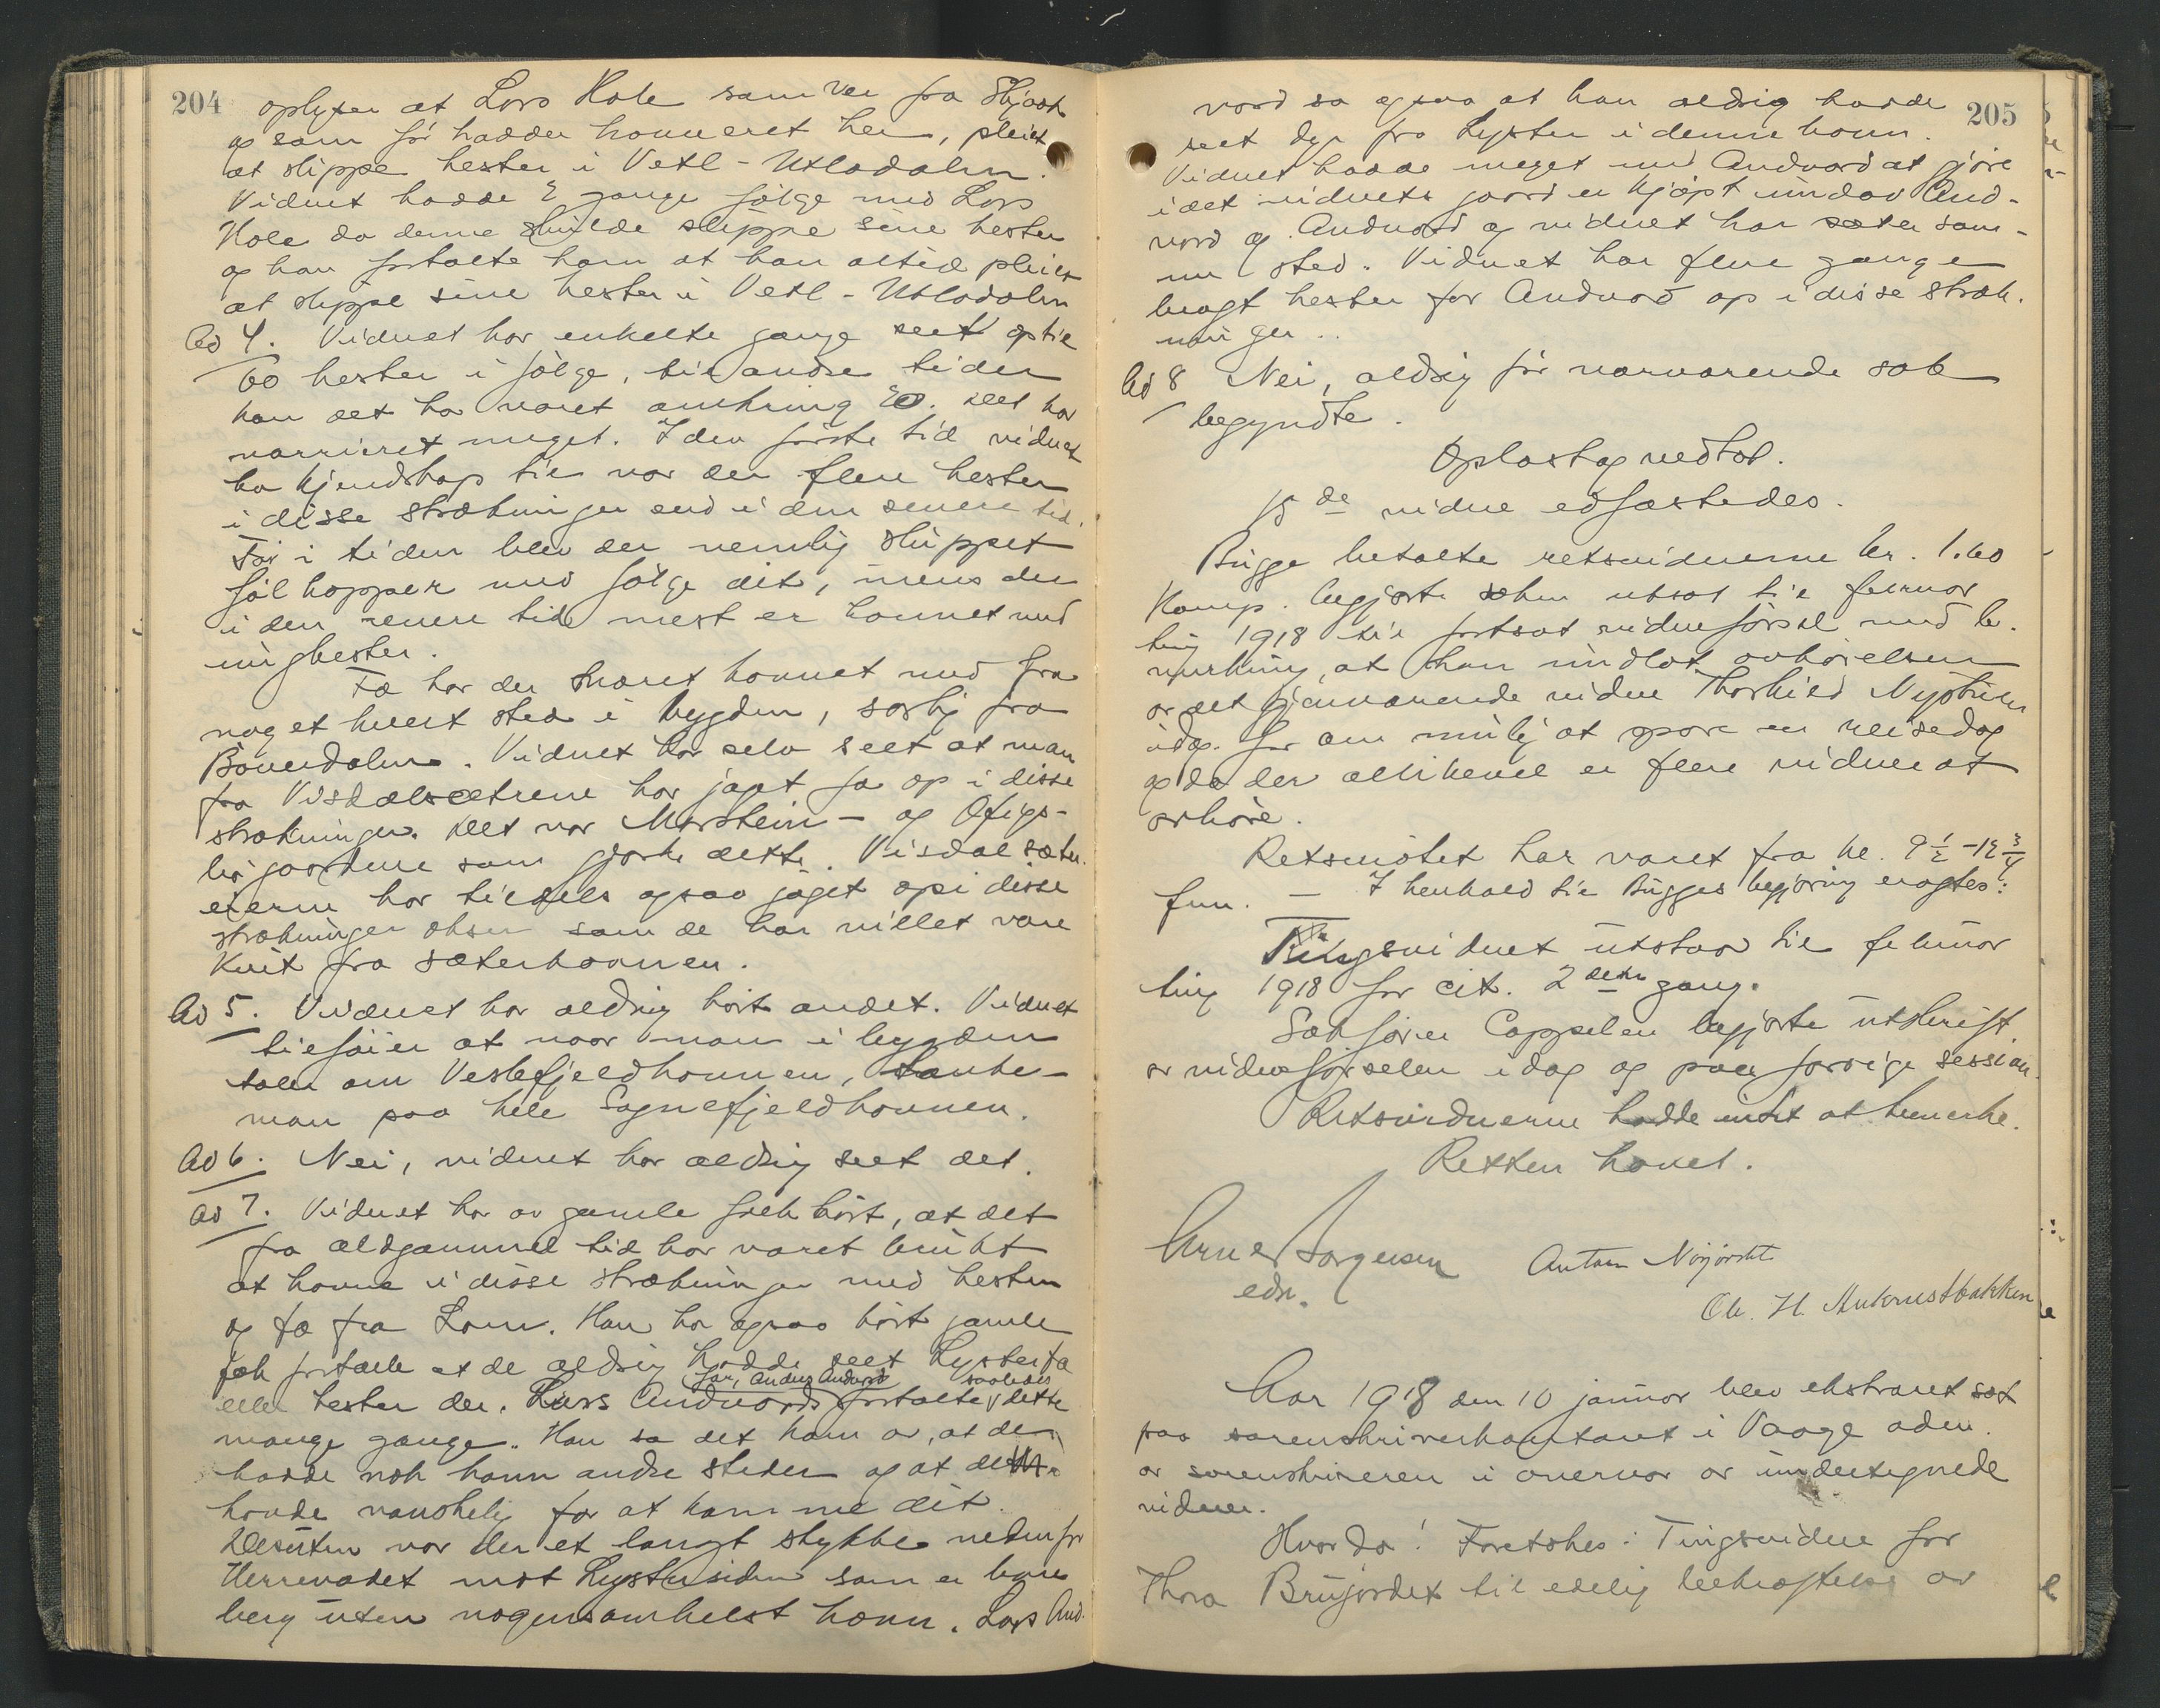 204
oplyser at Lars Hole som var fra Skjaak
og som før hadde havneret her, pleiet
at slippe hester i Vetl-Utladalen.
Vidnet hadde 2 gange følge med Lars
Hole da denne skulde slippe sine hester
og han fortalte ham at han altid pleiet
at slippe sine hester i Vetl-Utladalen
Ad 4. Vidnet har enkelte gange seet optil
60 hester i følge, til andre tider
kan det ha været omkring 20. Det har
varrieret meget. I den første tid vidnet
har kjendskap til var der flere hester
i disse strækninger end i den senere tid.
Før i tiden blev der nemlig sluppet
føl hopper med følge dit, mens der
i den senere tid mest er havnet med
unghester.
Fæ har der været havnet med fra
noget hvert sted i bygden, særlig fra
Bøverdalen. Vidnet har selv seet at man
fra Visdalssætrene har jaget fæ op i disse
strækninger. Det var Marstein- og Øfigs-
bøgaardene som gjorde dette. Visdalsæter
eierne har tildels ogsaa jaget op i disse
strækninger okser som de har villet være
kvit fra sæterhavnen.
Ad 5. Vidnet har aldrig hørt andet. Vidnet
tilføier at naar man i bygden
taler om Veslefjeldhavnen, tænke-
man paa hele Sognefjeldhavnen.
Ad 6. Nei, vidnet har aldrig seet det.
Ad 7. Vidnet har av gamle folk hørt, at det
fra ældgammel tid har været brukt
at havne i disse strækninger med hester
og fæ fra Lom. Han har ogsaa hørt gamle
folk fortælle at de aldrig hadde seet Lysterfæ
far, Anders Andvord saaledes
eller hester der. Lars Andvords fortalte dette
mange gange. Han sa det kom av, at de
hadde nok havn andre steder og at det
hadde vanskelig for at komme dit.
Desuten var der et langt stykke nedenfor
Herrevadet mot Lystersiden som er bare
berg uten nogensomhelst havn. Lars And-
205
vord sa ogsaa at han aldrig hadde
seet dyr fra Lyster i denne havn.
Vidnet hadde meget med Andvord at gjøre
idet vidnets gaard er kjøpt undav And-
vord og Andvord og vidnet har sæter sam-
me sted. Vidnet har flere gange
bragt hester for Andvord op i disse stræk-
ninger..
Ad 8 Nei, aldrig før nærværende sak
begyndte.
Oplæst og vedtat.
15 de vidne edfæstedes.
Bugge betalte retsvidnerne kr. 1.60
Komp. begjærte saken utsat til februar
ting 1918 til fortsat vidneførsel med be-
merkning, at han undlot avhørelsen
av det gjenværende vidne Thorkild Nystuen
idag for om mulig at spare en reisedag
og da der allikevel er flere vidner at
avhøre.
Retsmøtet har varet fra kl. 9 1/2 - 12 3/4
fm. – I henhold til Bugges begjæring eragtes:
Tingsvidnet utstaar til februar
ting 1918 for cit. 2 den gang.
Sakfører Cappelen begjærte utskrift
av vidneførselen idag og paa forrige session.
Retsvidnerne hadde intet at bemerke.
Retten hævet.
Arne Jørgensen
edsv.
Anton Nørjordet
Ole. H.
Aar 1918 den 10 januar blev ekstraret sat
paa sorenskriverkontoret i Vaage adm.
av sorenskriveren i overvær av undertegnede
vidner.
Hvorda! Foretokes: Tingsvidne for
Thora Brujordet til edelig bekræftelse av